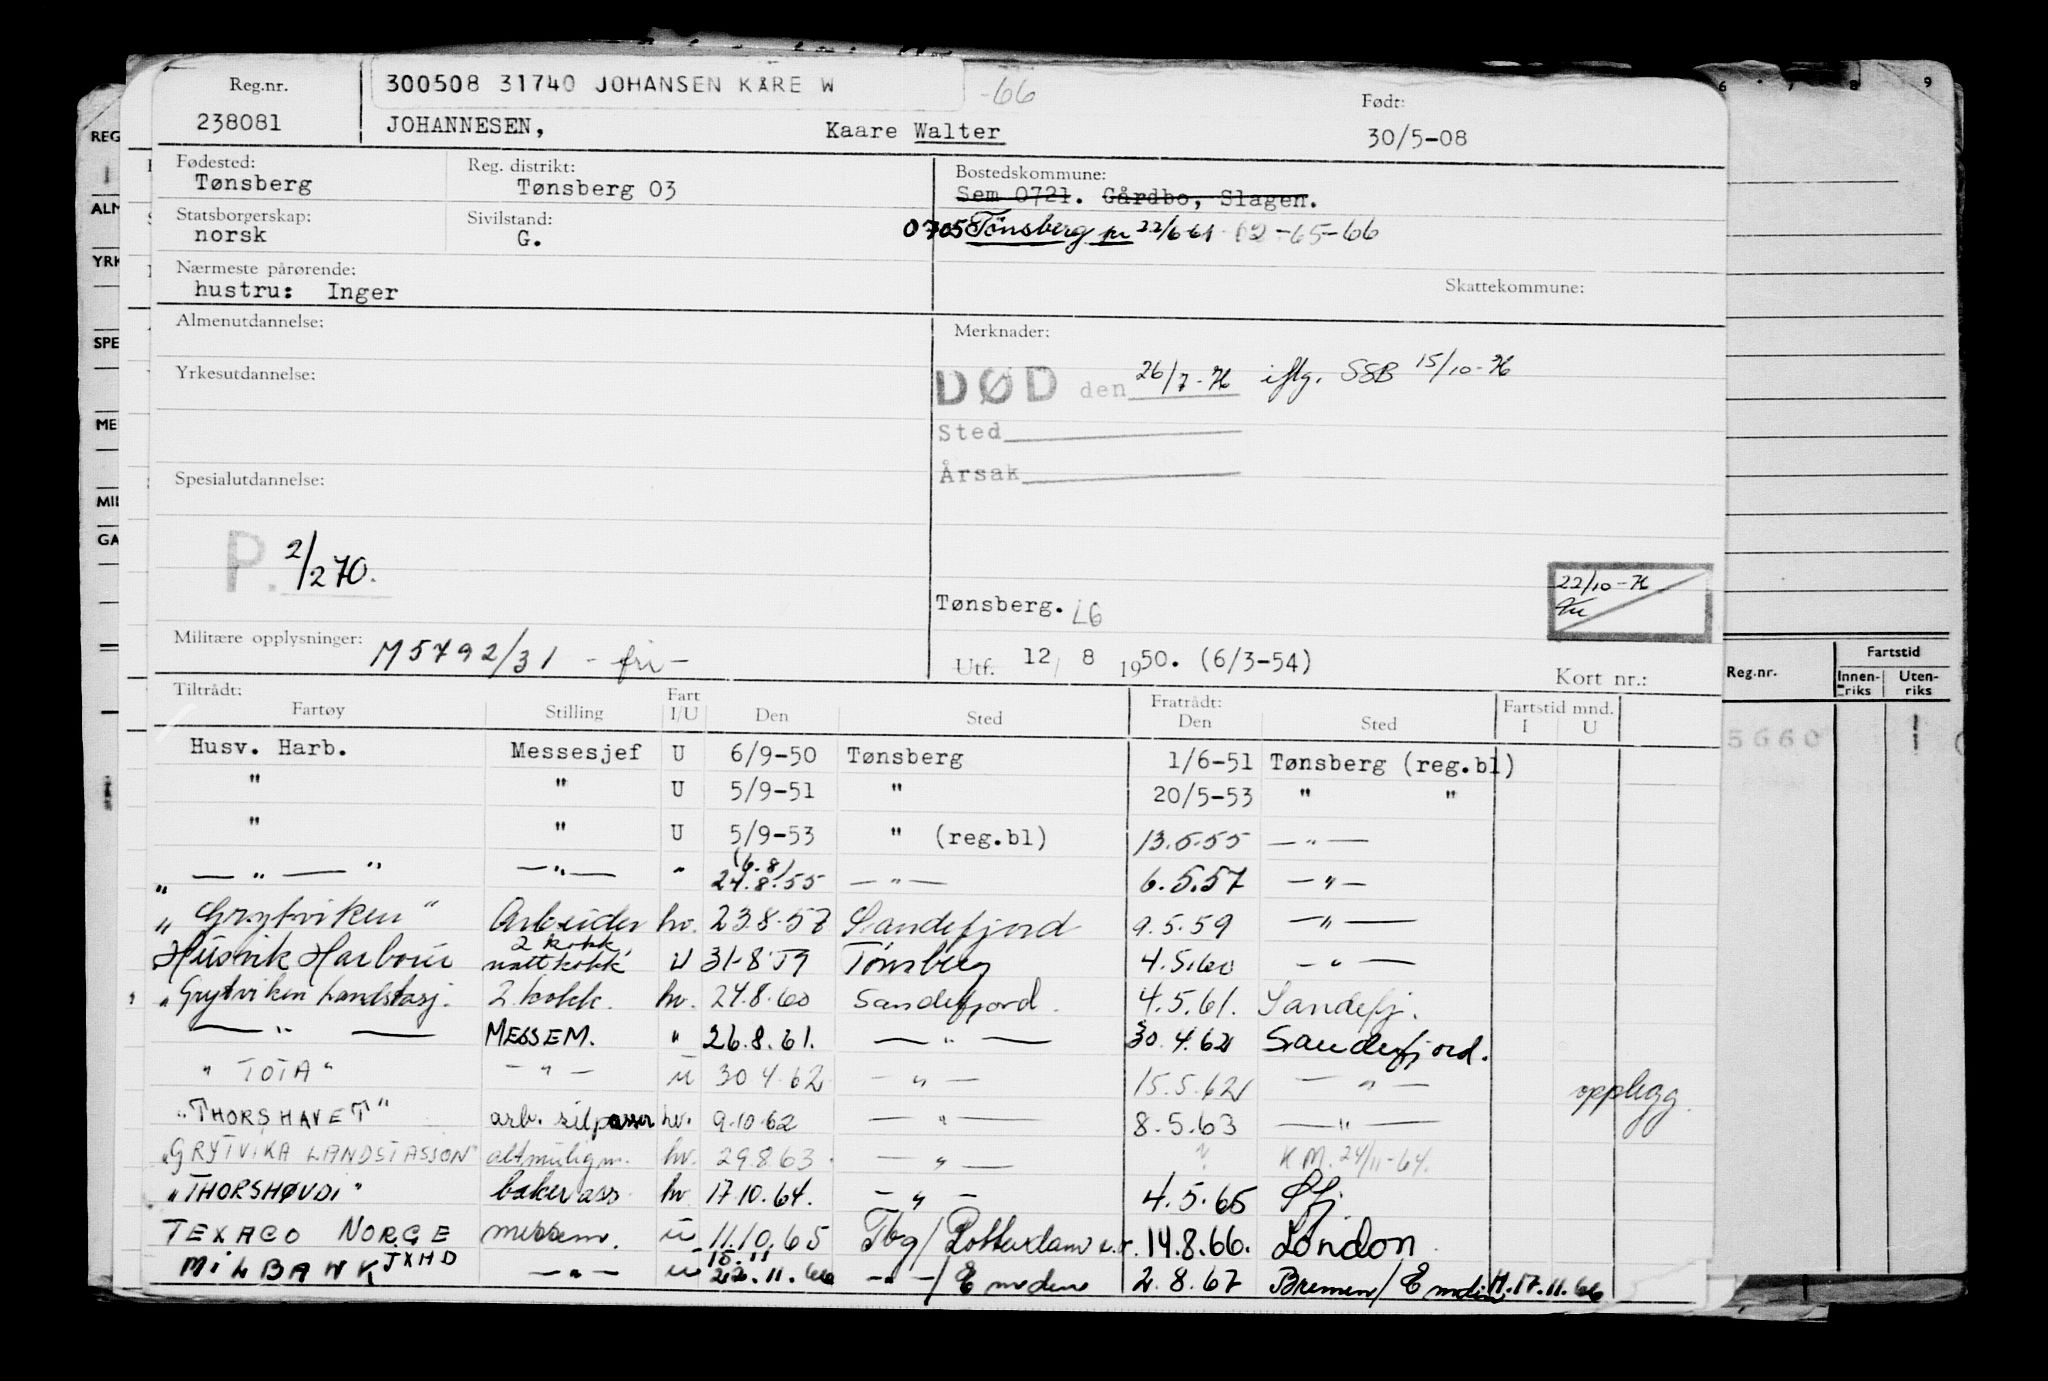 Reg.nr.
238081
300508 31740 JOHANSEN KÅRE W
-66
JOHANNESEN, Kaare Walter
Født:
30/5-08
Fødested:
Tønsberg
Reg. distrikt:
Tønsberg 03
Bostedskommune:
Sem 0721. Gårdbo, Slagen.
0705 Tønsberg pr 22/6-61 -65-66
Statsborgerskap:
norsk
Sivilstand:
G.
Nærmeste pårørende:
hustru: Inger
Skattekommune:
Almenutdannelse:
Merknader:
DØD den 26/7-76 iflg. SSB 15/10-76
Sted
Årsak
Yrkesutdannelse:
Spesialutdannelse:
P. 2/270.
22/10-76
Tønsberg. LG
Militære opplysninger: M5792/31 - fri -
Utf. 12/ 8 1950. (6/3-54)
Kort nr.:
Tiltrådt:
Fartøy Stilling Fart I/U Den Sted Fratrådt: Den Sted Fartstid mnd. I U
Husv. Harb. Messesjef U 6/9-50 Tønsberg 1/6-51 Tønsberg (reg.bl)
" " U 5/9-51 " 20/5-53 " "
" " U 5/9-53 " (reg.bl) 13.5.55 — " —
" — " — " — " — " (6.8) 24.8.55 — " — 6.5.57 — " —
" Grytviken " Arbeider hv. 23.8.57 Sandefjord 9.5.59 — " —
Husvik Harbour 2 kokk nattkokk U 31-8.59 Tønsberg 4.5.60 — " —
" Grytviken Landstasj. 2. kokk. hv. 24.8.60 Sandefjord. 4.5.61. Sandefj.
— " — MESSEM. " 26.8.61. — " — 30.4.62 Sandefjord.
" TOTA " — " — U 30.4.62 — " — 15.5.62 — " — opplegg
"THORSHAVET" arb. silpasser hv. 9.10.62 — " — 8.5.63 — " —
"GRYTVIKA LANDSTASJON" altmuligm. hv. 29.8.63. — " — ? KM. 24/11-64.
"THORSHØVDI" bakerass. hv 17.10.64. — " — 4.5.65 Sfj.
TEXACO NORGE messem. U 11.10.65 Tbg/Rotterdam 14.8.66. London
MILBANK JXHD — " — U 15.11 22.11.66 — " —/Emden 2.8.67 Bremen/Emden 17.11.66
REG
ALM
YRK
SPE
ME
MIL
GA
6 7 8 9
Reg.nr.
Fartstid
Innen-
riks
Uten-
riks
5660